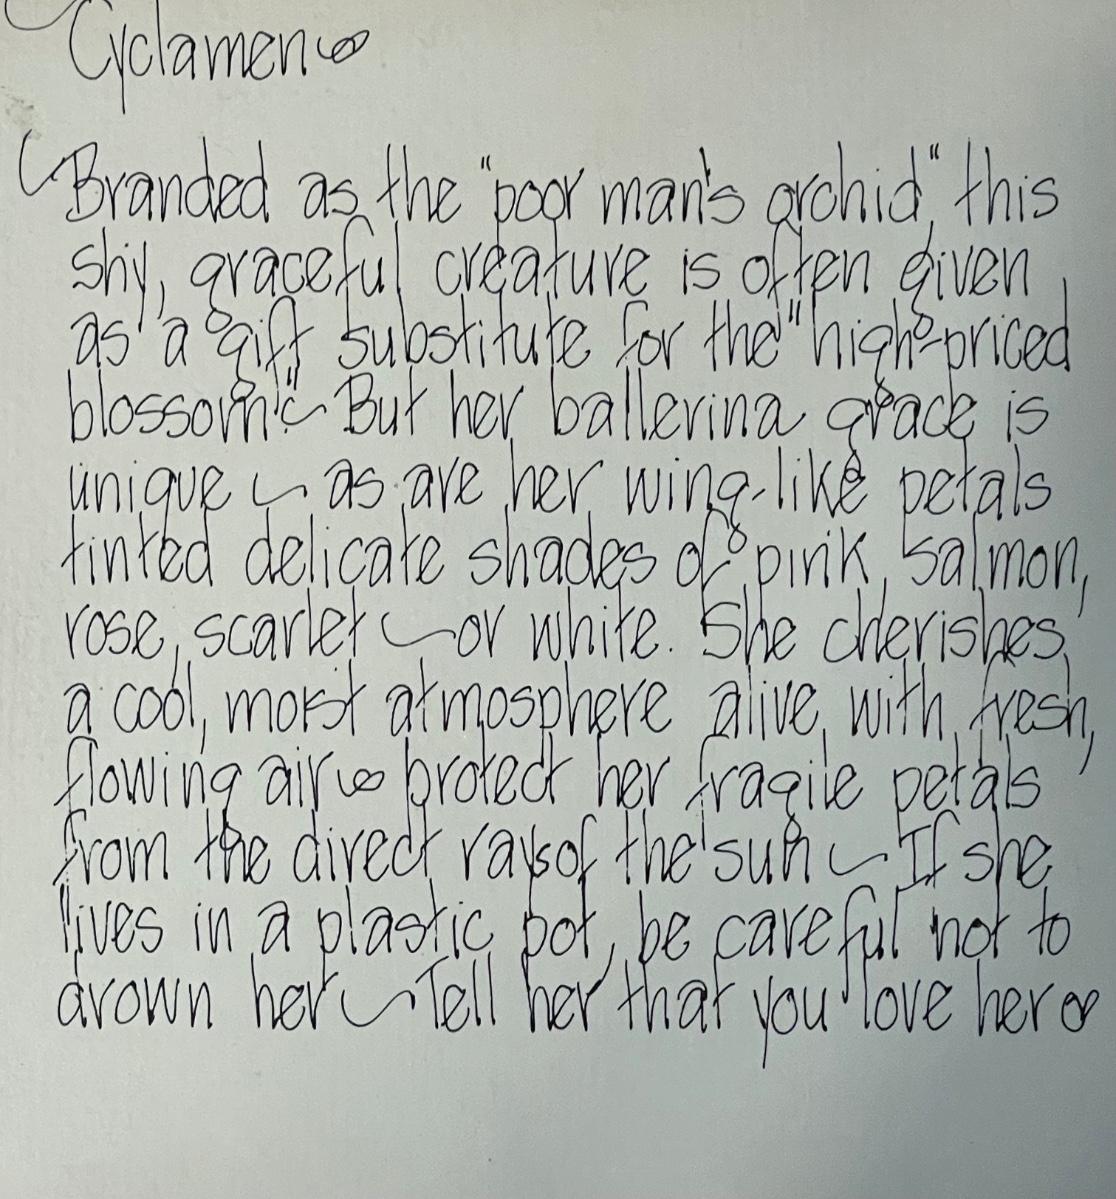 Cyclamen
Branded as the "poor man's orchid," this
shy, graceful creature is often given
as a gift substitute for the "high-priced
blossom". But her ballerina grace is
unique ~ as are her wing-like petals
tinted delicate shades of pink, salmon,
rose, scarlet ~ or white. She cherishes
a cool, moist atmosphere alive with fresh,
flowing air ∞ protect her fragile petals
from the direct rays of the sun ~ If she
lives in a plastic pot, be careful not to
drown her ~ Tell her that you love her